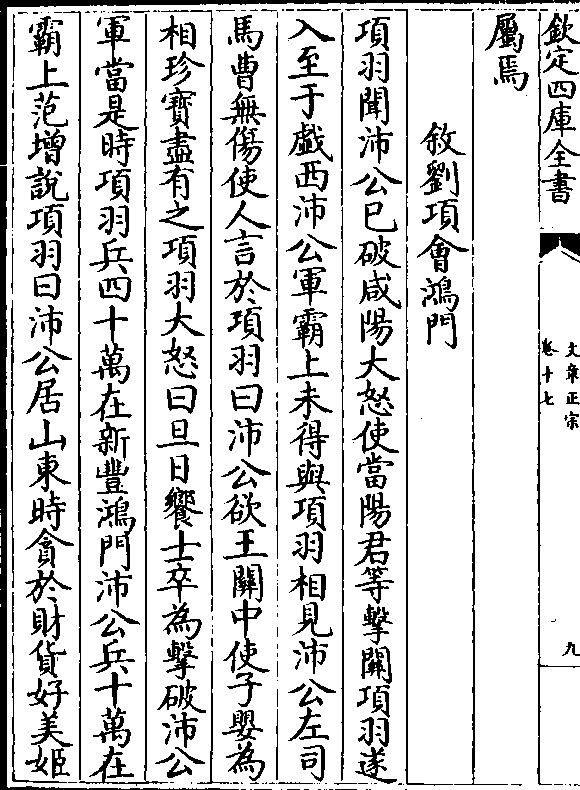 欽定四庫全書
文章正宗
卷十七
九
屬焉
敘劉項會鴻門
項羽聞沛公已破咸陽大怒使當陽君等擊關項羽遂
入至于戲西沛公軍霸上未得與項羽相見沛公左司
馬曹無傷使人言於項羽曰沛公欲王關中使子嬰為
相珍寶盡有之項羽大怒曰旦日饗士卒為擊破沛公
軍當是時項羽兵四十萬在新豐鴻門沛公兵十萬在
霸上范增說項羽曰沛公居山東時貪於財貨好美姬